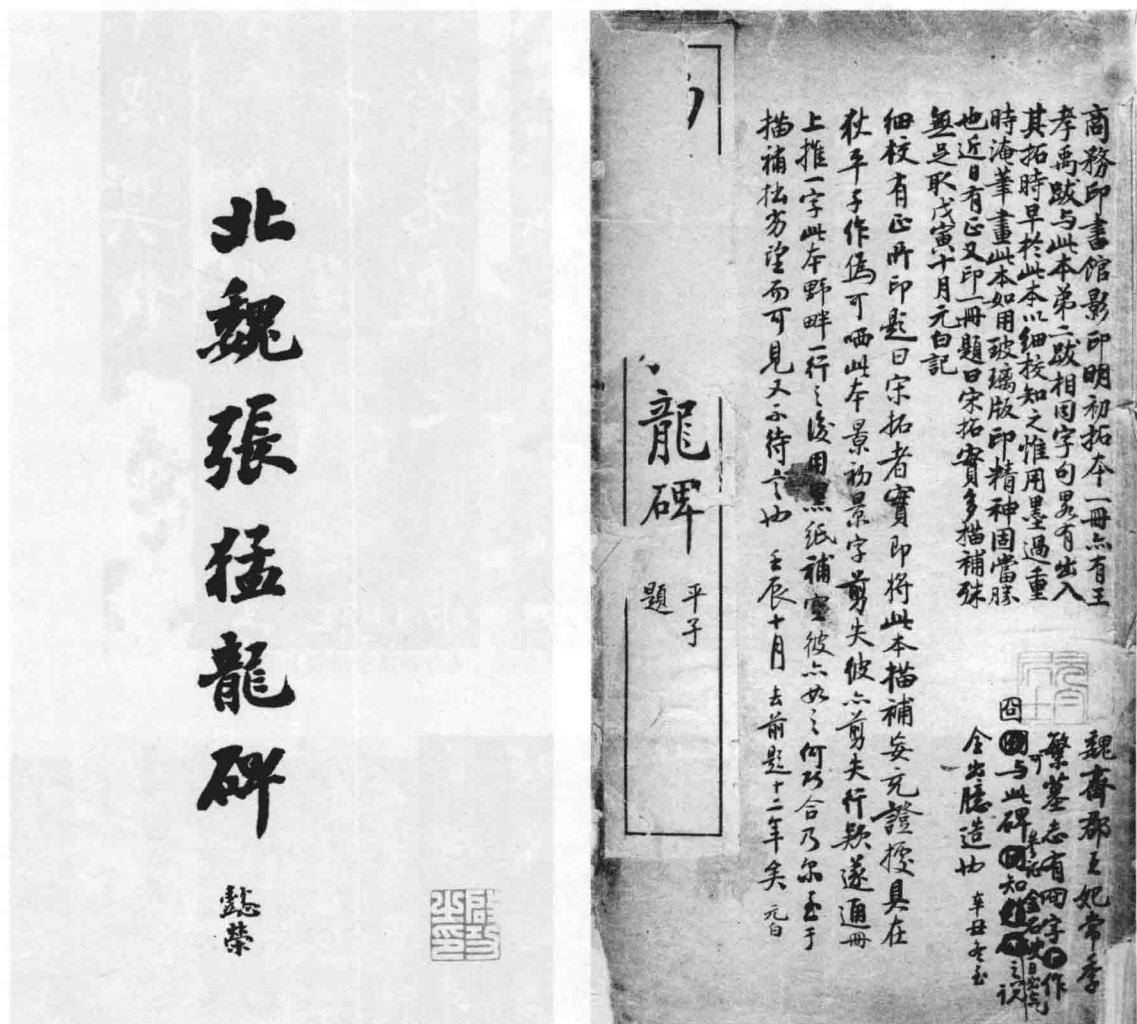 商務印書館影印明初拓本一冊亦有王
孝禹跋与此本弟二跋相同字句畧有出入
其拓時早於此本以細校知之惟用墨過重
時淹筆畫此本如用玻璃版印精神固當勝
也近日有正又印一冊題曰宋拓實多描補殊
無足取戊寅十月元白記
細校有正所印題曰宋拓者實即將此本描補每冗證擾具在
狄平子作偽可哂此本景初景字剪失彼亦剪失行款遂通冊
上推一字此本野畔一行之後用黑紙補空彼亦如之何巧合乃尔至于
描補拙劣望而可見又不待言也 壬辰十月 去前題十二年矣 元白
龍碑
平子
題
魏齊郡王妃常季
繁墓志有
字作
与此碑
知
之說
全出臆造也 辛丑冬至
北魏張猛龍碑
懿榮